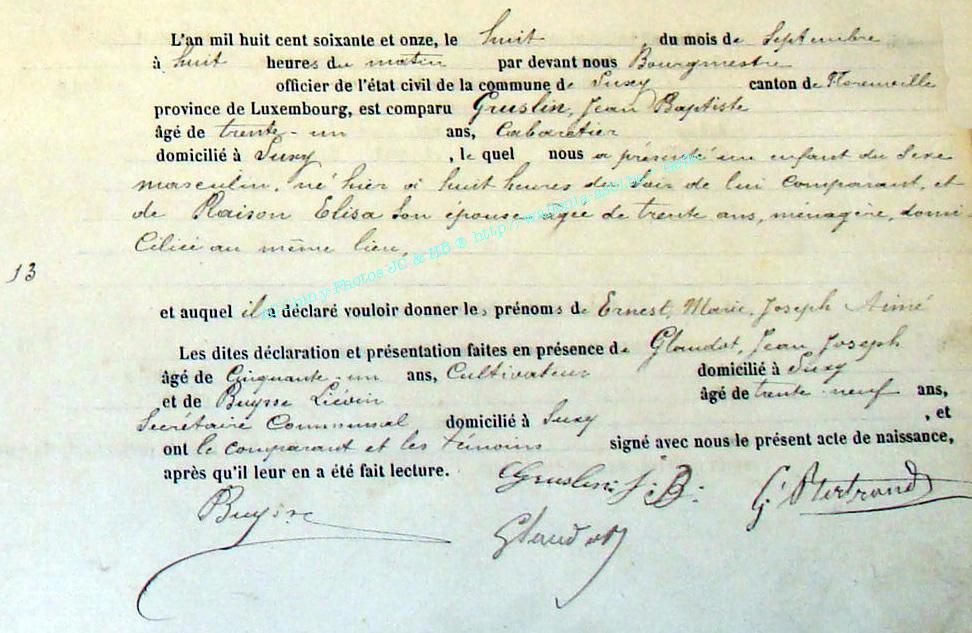 L'an mil huit cent soixante et onze, le huit du mois de Septembre
à huit heures du matin par devant nous Bourgmestre
officier de l'état civil de la commune de Suxy canton de Florenville
province de Luxembourg, est comparu Gruslin, Jean Baptiste
âgé de trente-un ans, Cabaretier
domicilié à Suxy, le quel nous a présenté un enfant du Sexe
masculin, né hier à huit heures du Soir de lui comparant, et
de Raison Elisa Son épouse agée de trente ans, ménagère, domi
Ciliée au même lieu,
13
et auquel il a déclaré vouloir donner les prénoms de Ernest, Marie, Joseph Aimé
Les dites déclaration et présentation faites en présence de Glaudot, Jean Joseph
âgé de Cinquante-un ans, Cultivateur domicilié à Suxy
et de Buysse Liévin âgé de trente-neuf ans,
Secrétaire Communal domicilié à Suxy, et
ont le comparant et les témoins signé avec nous le présent acte de naissance,
après qu'il leur en a été fait lecture.
Gruslin J. B.
G. Bertrand
Buysse
Glaudot